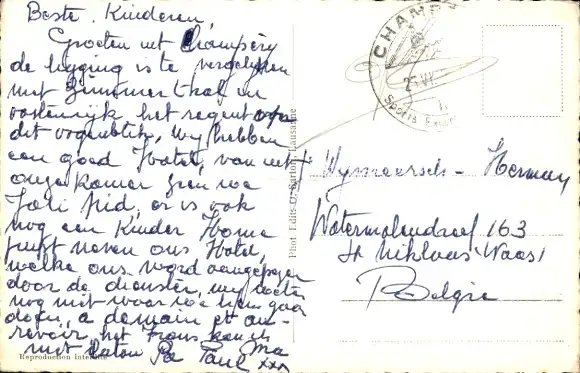 Beste Kinderen,
Groeten uit Champéry
de ligging is te vergelijken
met Zimmerthal in
oostenrijk het regent op
dit ogenblik, wij hebben
een goed Hotel, van uit
onze kamer zien we
er is ook
nog een Kinder Home
juist neven ons Hotel,
welke ons word aangegeven
door de dienster, wij weten
nog niet waar we heen gaan
doen, a demain et au-
revoir, het Frans kan ik
niet laten Pa Ma
xxx
Reproduction Interdite
Phot. Edit. O. Sartori, Lausanne
CHAMP
25 VI
Sports
Wymeersch - Herman
Watermolendreef 163
St Niklaas (Waas)
Belgie